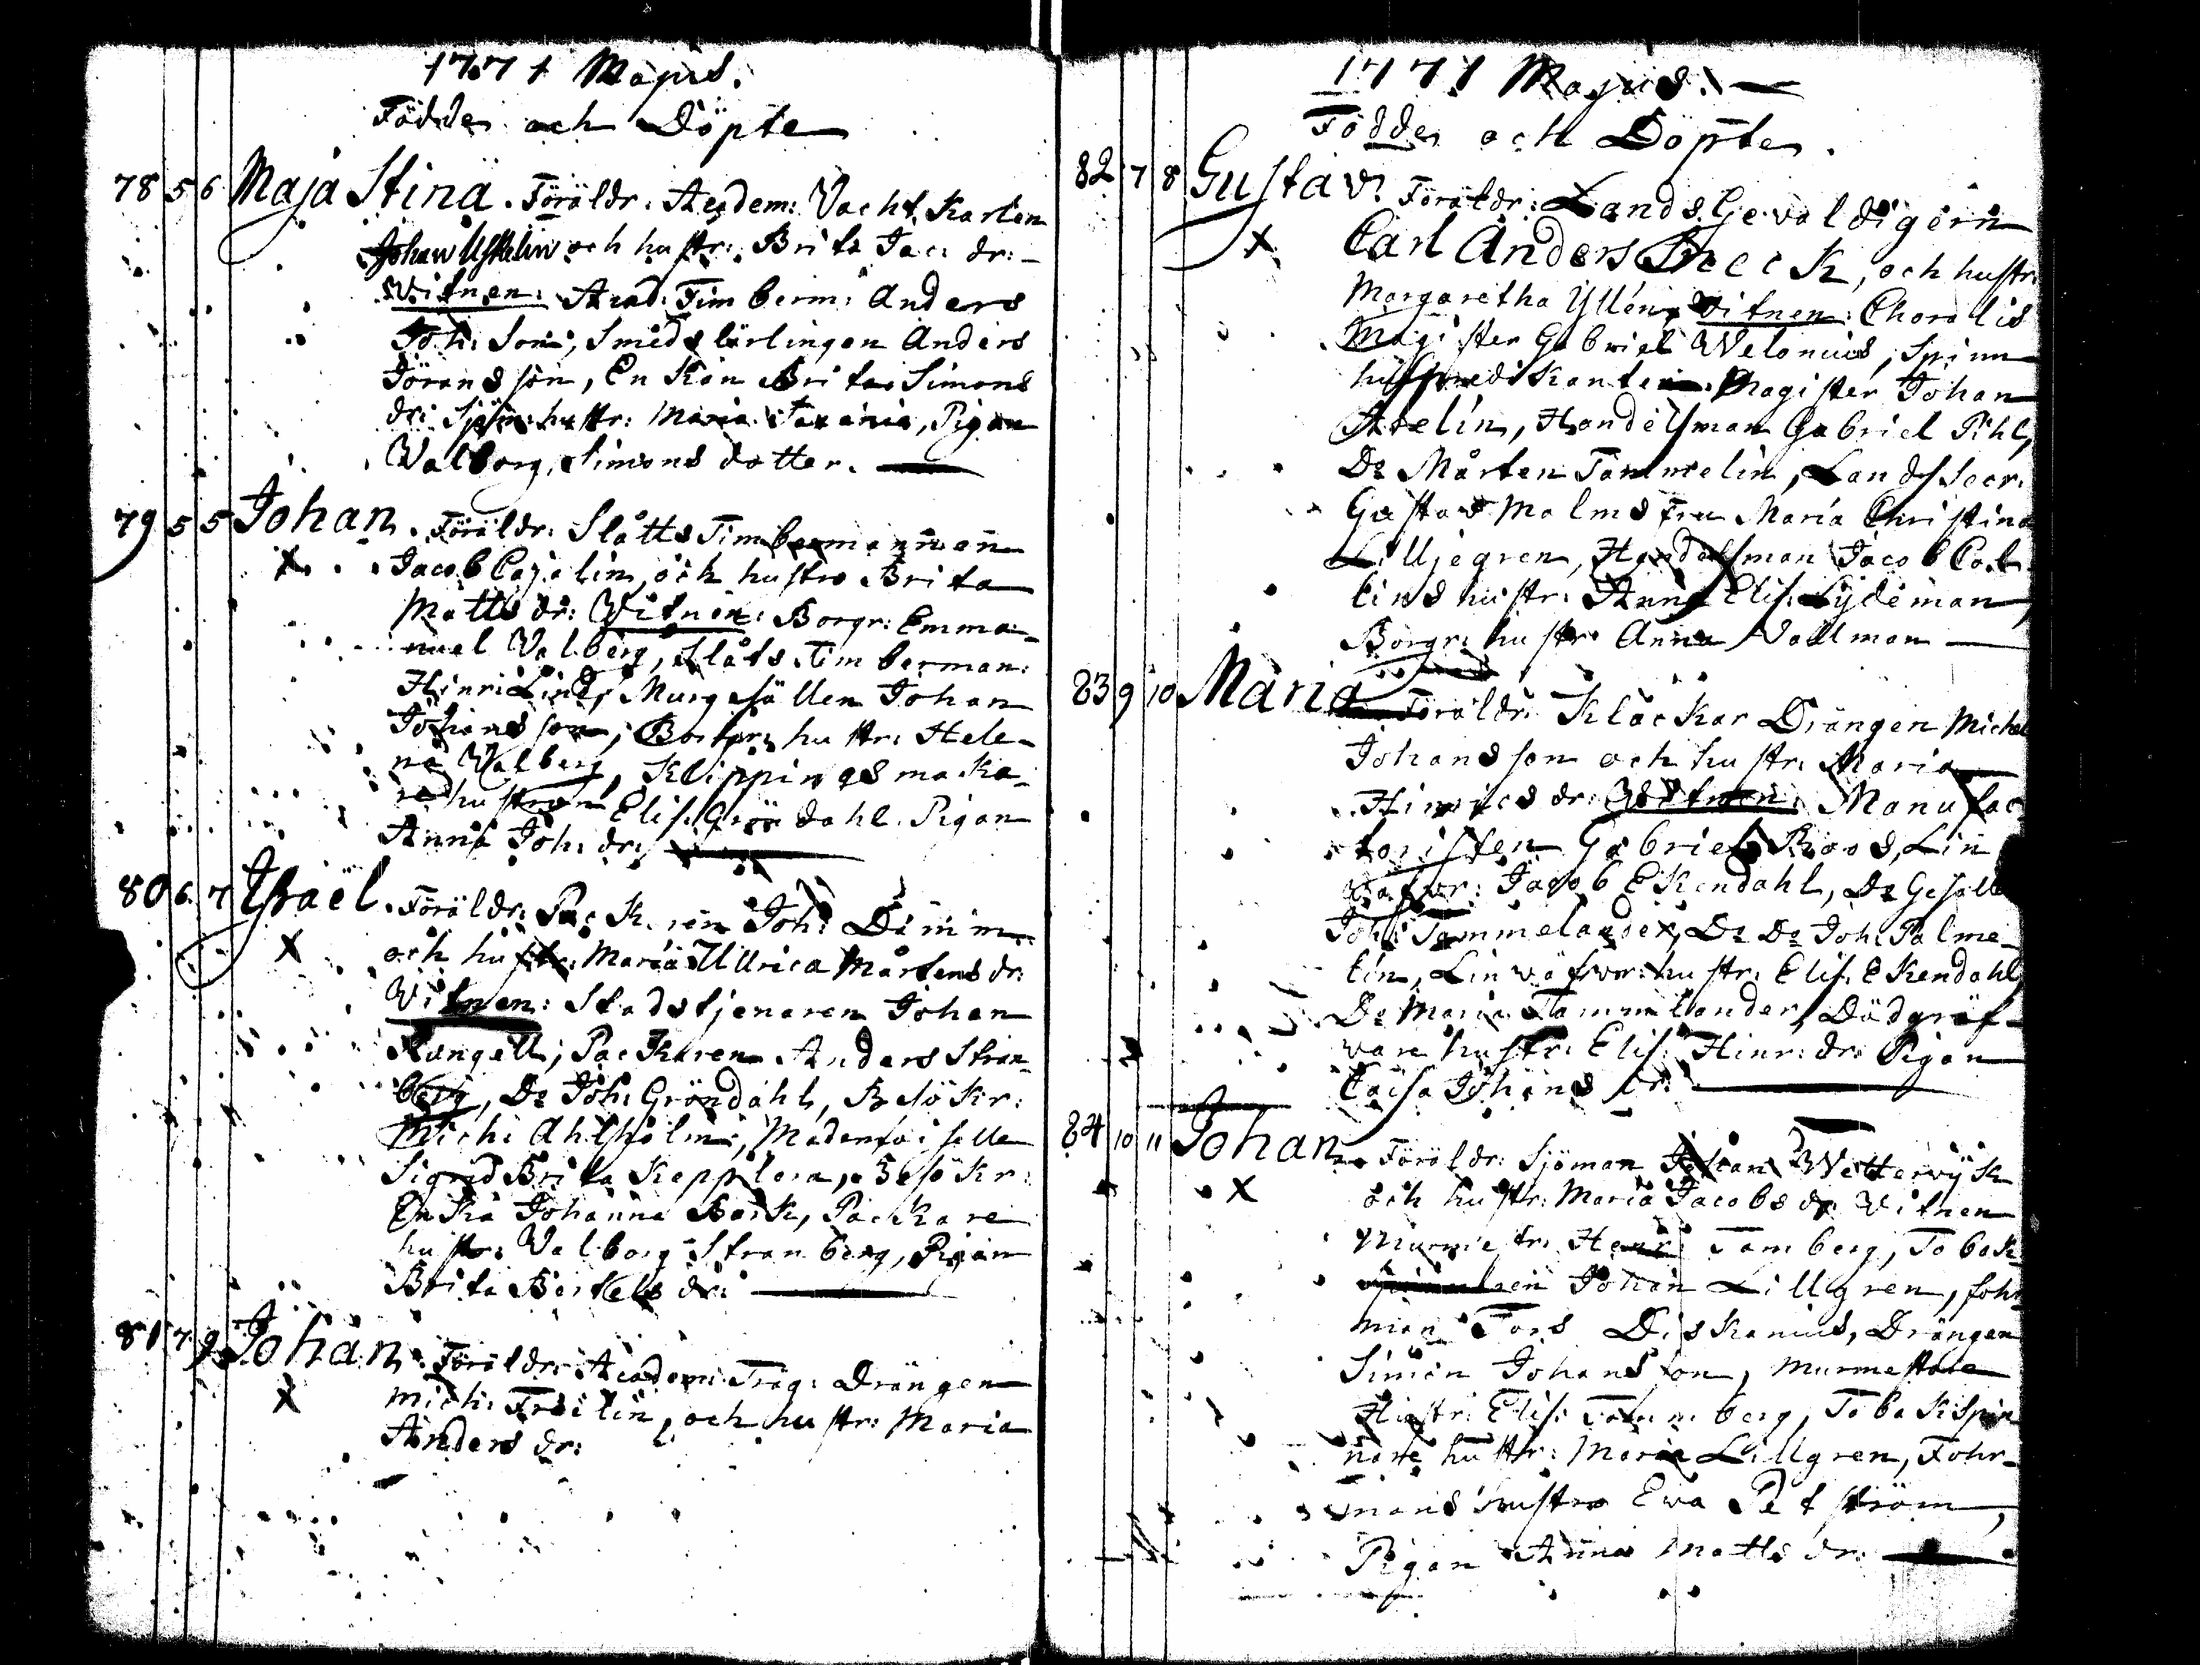 1771 Majus.
Födde och Döpte
78 5 6 Maja Stina. Föräldr. Academ: Vacht Karlen
Johan Ustelin och hustr: Brita Jac: dr:
Witnen: Acad: Timberm: Anders
Joh: Son; Smeds lärlingen Anders
Jöransson, Enkan Brita Simons
dr: hustr: Maria Pigan
Walborg Simons dotter.
79 5 5 Johan. Föräldr: Slåtts Timbermannen
Jacob Cajalin, och hustro Brita
Matts dr: Witnen: Borgr: Emma-
nuel Valberg, Slåts Timberman:
Hinric Lind, Murgesällen Johan
Johansson; Borgr: hustr: Hele-
na Walberg, Klippingsmaka-
re hustrun Elis: Gröndahl. Pigan
Anna Joh: dr:
80 6 7 Israël. Föräldr: Packaren Joh: Dimm
X och hustr: Maria Ullrica Mårtens dr:
Vitnen: Stadstjenaren Johan
Rungell; Packaren Anders Stran-
berg, Do Joh: Gröndahl, Besökr:
Mich: Ahlholm; Mademoiselle
Sigrid Brita Kepplera, Besökr:
Enka Johanna Bark, Packare
hustr: Valborg Stranberg, Pigan
Brita Bertels dr:
81 7 9 Johan. Föräldr: Academ: Träg: Drängen
X Mich: Freilin, och hustr: Maria
Anders dr:
1771 Majus.
Födde och Döpte.
82 7 8 Gustav. Föräldr: Lands Gevaldigern
X Carl Anders och hustr:
Margaretha Yllén, Vitnen: Choralis
Magister Gabriel Welonius, Spinn
huspredikanten Magister Johan
Avelin, Handelsman Gabriel Pihl,
Do Mårten Tammelin, Lands Secr:
Gustav Malms Fru Maria Christina
Lilljegren, Handelsman Jacob
hustr: Anna Elis: Lydeman,
Borgr: hustr: Anna Vallman
83 9 10 Maria Föräldr: Klåckar Drängen Michel
Johansson och hustr: Maria
Hinrics dr: Witnen: Manufac-
toristen Gabriel Roos, Lin
väfvr: Jacob Ekendahl, Do Gesälle
Joh: Tammelander, Do Do Joh: Palme-
lin, Linväfvr: hustr: Elis: Ekendahl,
Do Maria Tammelander, Dödgräf-
vare hustr: Elis: Hinr: dr: Pigan
Caisa Johans dr:
84 10 11 Johan. Föräldr: Sjöman Johan Wetterwijk
X och hustr: Maria Jacobs dr: Vitnen
Henr: Tamberg, Tobak
Johan Lillgren, Fohr
man Tors Diskanius, Drängen
Simon Johansson, Murmestare
Hustr: Elis: Tamberg, Tobakspin
nare hustr: Maria Lillgren, Fohr-
mans hustro Eva Petström,
Pigan Anna Matts dr: